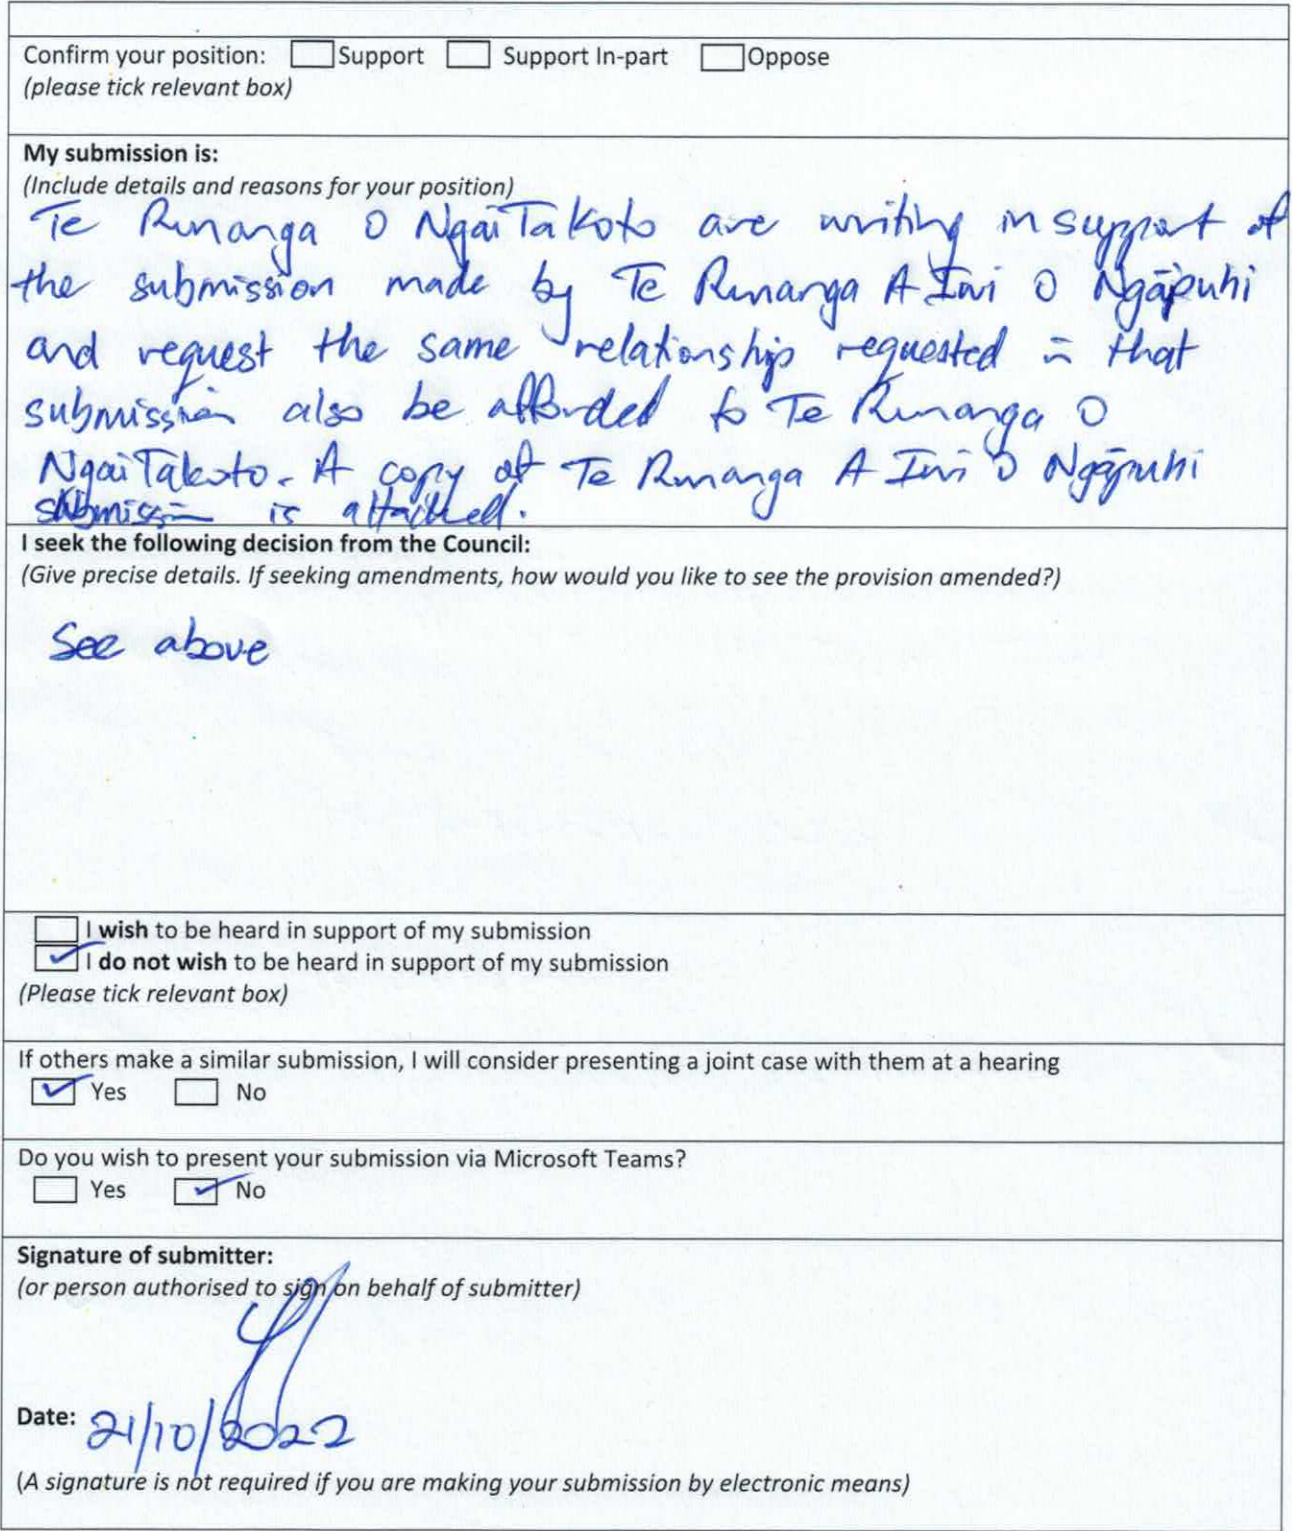 Confirm your position: Support Support In-part Oppose
(please tick relevant box)
My submission is:
(Include details and reasons for your position)
Te Runanga O NgaiTakoto are writing in support of
the submission made by Te Runanga A Iwi O Ngāpuhi
and request the same relationship requested in that
submission also be afforded to Te Runanga O
NgaiTakoto. A copy of Te Runanga A Iwi O Ngāpuhi
submission is attached.
I seek the following decision from the Council:
(Give precise details. If seeking amendments, how would you like to see the provision amended?)
See above
I wish to be heard in support of my submission
I do not wish to be heard in support of my submission
(Please tick relevant box)
If others make a similar submission, I will consider presenting a joint case with them at a hearing
Yes No
Do you wish to present your submission via Microsoft Teams?
Yes No
Signature of submitter:
(or person authorised to sign on behalf of submitter)
Date: 21/10/2022
(A signature is not required if you are making your submission by electronic means)